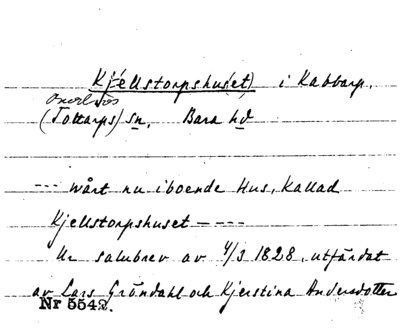 Kjellstorpshus(et) i Kabbarp.
(Tottarps) sn. Bara hd
--- wårt nu iboende Hus, Kallad
Kjellstorpshuset ----
Ur salubrev av 4/3 1828, utfärdat
av Lars Gröndahl och Kjerstina Andersdotter
Nr 5542.